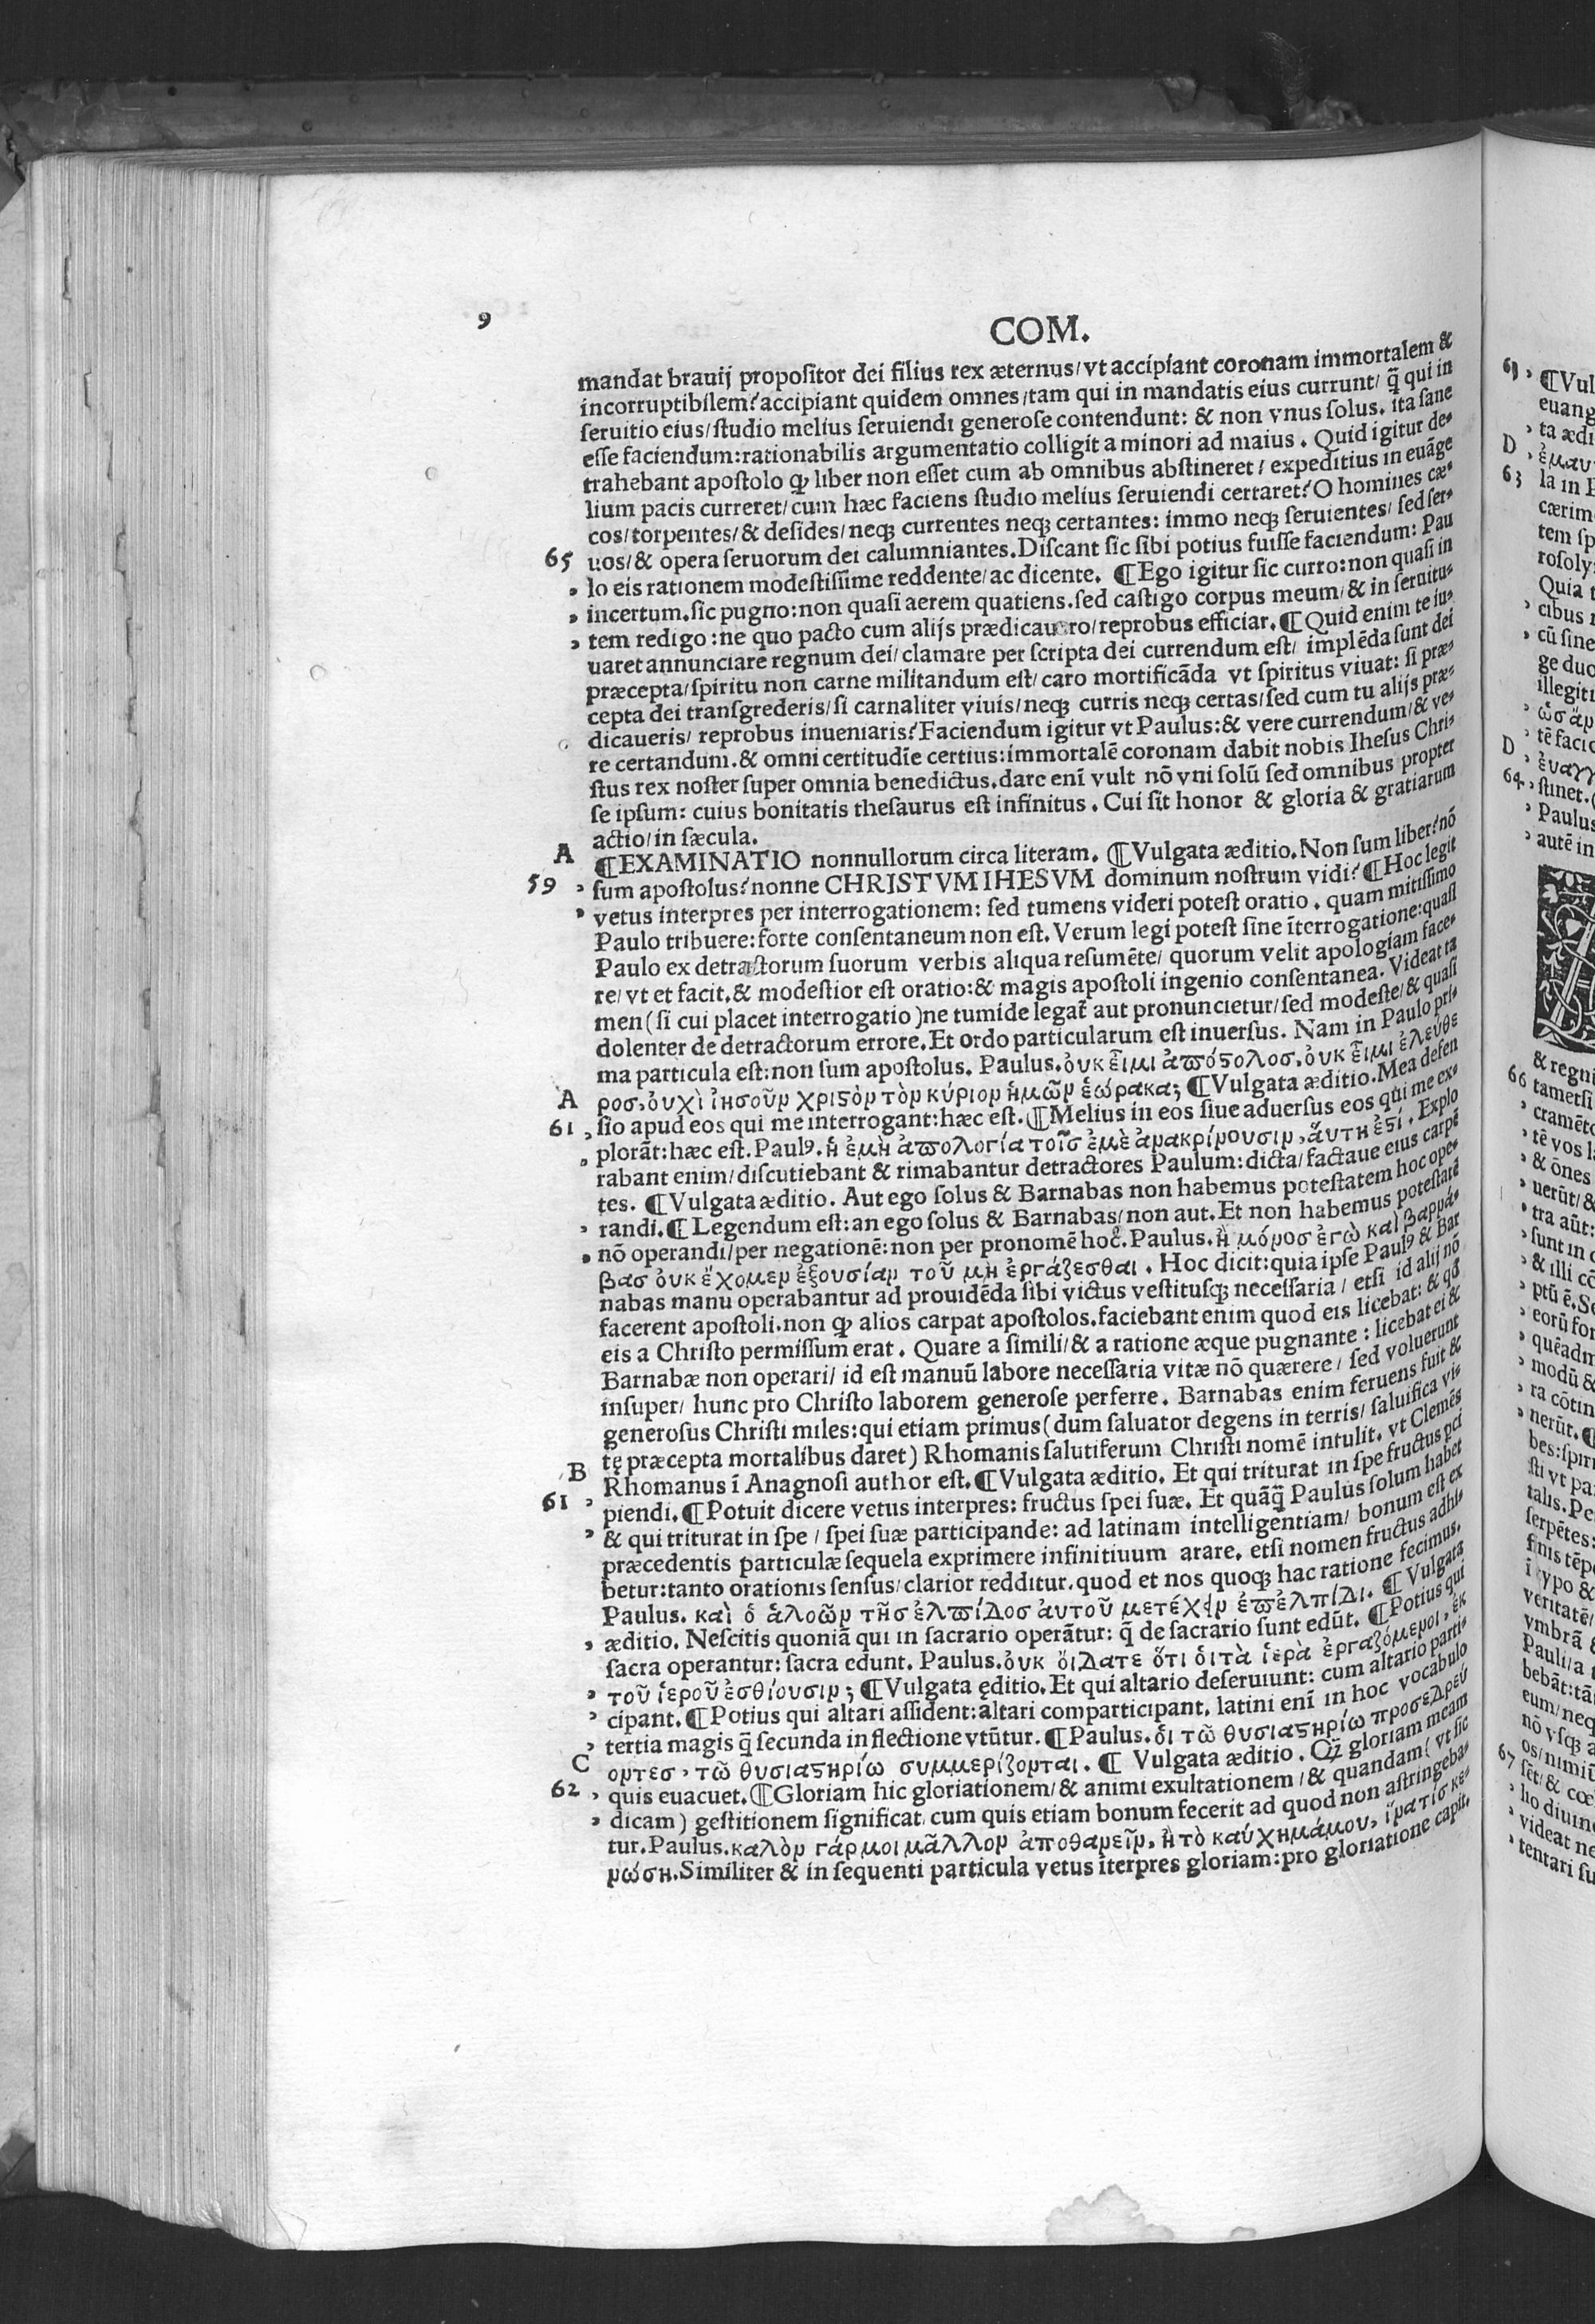 9
COM.
mandat brauij propositor dei filius rex æternus/vt accipiant coronam immortalem &
incorruptibilem? accipiant quidem omnes/tam qui in mandatis eius currunt/ q̃ qui in
seruitio eius/studio melius seruiendi generose contendunt: & non vnus solus. ita sane
esse faciendum: rationabilis argumentatio colligit a minori ad maius. Quid igitur de-
trahebant apostolo ꝙ liber non esset cum ab omnibus abstineret/ expeditius in euãge
lium pacis curreret/cum hæc faciens studio melius seruiendi certaret? O homines cæ-
cos/torpentes/& desides/neqꝫ currentes neqꝫ certantes: immo neqꝫ seruientes/ sed ser-
65 uos/& opera seruorum dei calumniantes. Discant sic sibi potius fuisse faciendum: Pau
lo eis rationem modestissime reddente/ac dicente. ¶Ego igitur sic curro: non quasi in
incertum. sic pugno: non quasi aerem quatiens. sed castigo corpus meum/& in seruitu-
tem redigo: ne quo pacto cum alijs prædicauero/reprobus efficiar. ¶Quid enim te iu-
uaret annunciare regnum dei/clamare per scripta dei currendum est/ implẽda sunt dei
præcepta/spiritu non carne militandum est/caro mortificãda vt spiritus viuat: si præ-
cepta dei transgrederis/si carnaliter viuis/neqꝫ curris neqꝫ certas/sed cum tu alijs præ-
dicaueris/ reprobus inueniaris? Faciendum igitur vt Paulus: & vere currendum/& ve-
re certandum. & omni certitudĩe certius: immortalẽ coronam dabit nobis Ihesus Chri-
stus rex noster super omnia benedictus. dare enĩ vult nõ vni solũ sed omnibus propter
se ipsum: cuius bonitatis thesaurus est infinitus. Cui sit honor & gloria & gratiarum
actio/in sæcula.
A ¶EXAMINATIO nonnullorum circa literam. ¶Vulgata æditio. Non sum liber? nõ
59 sum apostolus? nonne CHRISTVM IHESVM dominum nostrum vidi? ¶Hoc legit
vetus interpres per interrogationem: sed tumens videri potest oratio. quam mitissimo
Paulo tribuere: forte consentaneum non est. Verum legi potest sine ĩterrogatione: quasi
Paulo ex detractorum suorum verbis aliqua resumẽte/ quorum velit apologiam face-
re/vt et facit. & modestior est oratio: & magis apostoli ingenio consentanea. Videat ta
men (si cui placet interrogatio) ne tumide legat̃ aut pronuncietur/sed modeste/& quasi
dolenter de detractorum errore. Et ordo particularum est inuersus. Nam in Paulo pri-
ma particula est: non sum apostolus. Paulus. ὀυκ ἐῖμι ἀπόϛολοσ. ὀυκ ἐῖμι ἐλεύθε
A ροσ. ὀυχὶ ἰησοῦν χριϛὸν τὸν κύριον ἡμῶν ἑώρακα; ¶Vulgata æditio. Mea defen
61 sio apud eos qui me interrogant: hæc est. ¶Melius in eos siue aduersus eos qui me ex-
plorãt: hæc est. Paulꝰ. ἡ ἐμὴ ἀπολογία τοῖσ ἐμὲ ἀνακρίνουσιν, ἅυτη ἐϛί. Explo
rabant enim/discutiebant & rimabantur detractores Paulum: dicta/factaue eius carpẽ
tes. ¶Vulgata æditio. Aut ego solus & Barnabas non habemus potestatem hoc ope-
randi. ¶Legendum est: an ego solus & Barnabas/non aut. Et non habemus potestatẽ
nõ operandi/per negationẽ: non per pronomẽ hoc. Paulus. ἢ μόνοσ ἐγὼ καὶ βαρνά-
βασ ὀυκ ἔχομεν ἐξουσίαν τοῦ μὴ ἐργάζεσθαι. Hoc dicit: quia ipse Paulꝰ & Bar
nabas manu operabantur ad prouidẽda sibi victus vestitusqꝫ necessaria/ etsi id alij nõ
facerent apostoli. non ꝙ alios carpat apostolos. faciebant enim quod eis licebat: & qđ
eis a Christo permissum erat. Quare a simili/& a ratione æque pugnante: licebat ei &
Barnabæ non operari/ id est manuũ labore necessaria vitæ nõ quærere/ sed voluerunt
insuper/ hunc pro Christo laborem generose perferre. Barnabas enim feruens fuit &
generosus Christi miles: qui etiam primus (dum saluator degens in terris/ saluifica vi-
tę præcepta mortalibus daret) Rhomanis salutiferum Christi nomẽ intulit. vt Clemẽs
B Rhomanus ĩ Anagnosi author est. ¶Vulgata æditio. Et qui triturat in spe fructus pci
61 piendi. ¶Potuit dicere vetus interpres: fructus spei suæ. Et quãq̃ Paulus solum habet
& qui triturat in spe/ spei suæ participande: ad latinam intelligentiam/ bonum est ex
præcedentis particulæ sequela exprimere infinitiuum arare. etsi nomen fructus adhi-
betur: tanto orationis sensus/clarior redditur. quod et nos quoqꝫ hac ratione fecimus.
Paulus. καὶ ὁ ἁλοῶν τῆσ ἐλπίδοσ ἀυτοῦ μετέχειν ἐπ ἐλπίδι. ¶Vulgata
æditio. Nescitis quoniã qui in sacrario operãtur: q̃ de sacrario sunt edũt. ¶Potius qui
sacra operantur: sacra edunt. Paulus. ὀυκ ὄιδατε ὅτι ὁι τὰ ἱερὰ ἐργαζόμενοι, ἐκ
τοῦ ἱεροῦ ἐσθίουσιν; ¶Vulgata ęditio. Et qui altario deseruiunt: cum altario parti-
cipant. ¶Potius qui altari assident: altari comparticipant. latini enĩ in hoc vocabulo
tertia magis q̃ secunda inflectione vtũtur. ¶Paulus. ὁι τῶ θυσιαϛηρίω προσεδρεύ
C οντεσ, τῶ θυσιαϛηρίω συμμερίζονται. ¶ Vulgata æditio. Qꝫ gloriam meam
62 quis euacuet. ¶Gloriam hic gloriationem/& animi exultationem/& quandam (vt sic
dicam) gestitionem significat. cum quis etiam bonum fecerit ad quod non astringeba-
tur. Paulus. καλὸν γάρ μοι μᾶλλον ἀποθανεῖν, ἢ τὸ καύχημά μου, ἵνα τίσ κε-
νώση. Similiter & in sequenti particula vetus ĩterpres gloriam: pro gloriatione capit.